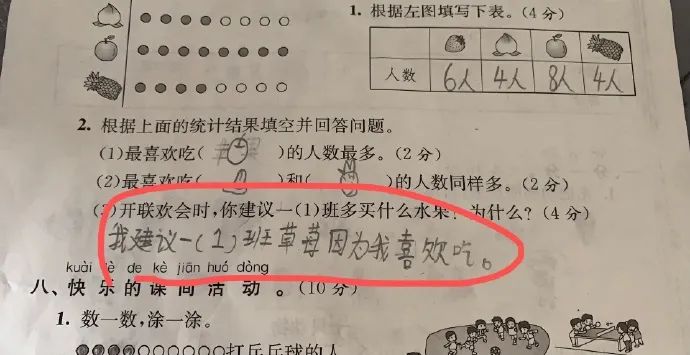 1. 根据左图填写下表。(4分)
人数 6人 4人 8人 4人
2. 根据上面的统计结果填空并回答问题。
(1)最喜欢吃( )的人数最多。(2分)
(2)最喜欢吃( )和( )的人数同样多。(2分)
(3)开联欢会时,你建议一(1)班多买什么水果?为什么?(4分)
我建议一(1)班草莓因为我喜欢吃。
kuài lè de kè jiān huó dòng
八、快乐的课间活动。(10分)
1. 数一数,涂一涂。
打乒乓球的人